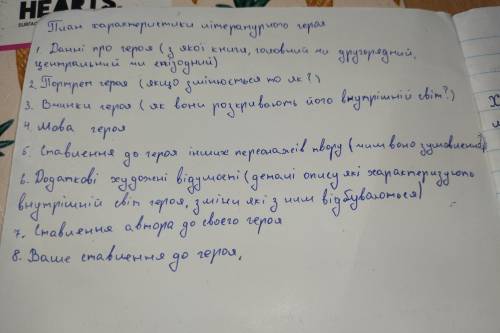 HEARTS.
План характеристики літературного героя
1. Данні про героя (з якої книги, головний чи другорядний,
центральний чи епізодний)
2. Портрет героя (якщо змінюється то як?)
3. Вчинки героя (як вони розкривають його внутрішній світ?)
4. Мова героя
5. Ставлення до героя інших персонажів твору (чим воно зумовленно)
6. Додаткові художні відумості (деталі опису які характеризують
внутрішній світ героя, зміни які з ним відбуваються)
7. Ставлення автора до свого героя
8. Ваше ставлення до героя.